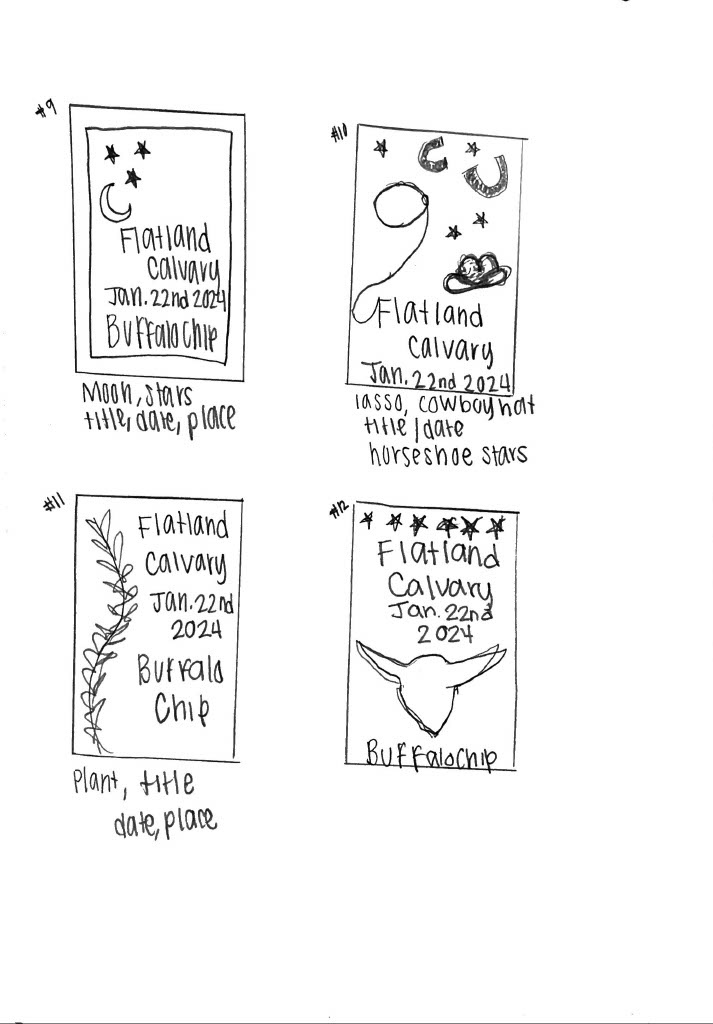 #9
Flatland
Calvary
Jan. 22nd 2024
Buffalo Chip
Moon, stars
title, date, place
#10
Flatland
Calvary
Jan. 22nd 2024
lasso, cowboy hat
title / date
horseshoe stars
#11
Flatland
Calvary
Jan. 22nd
2024
Buffalo
Chip
Plant, title
date, place
#12
Flatland
Calvary
Jan. 22nd
2024
Buffalo Chip